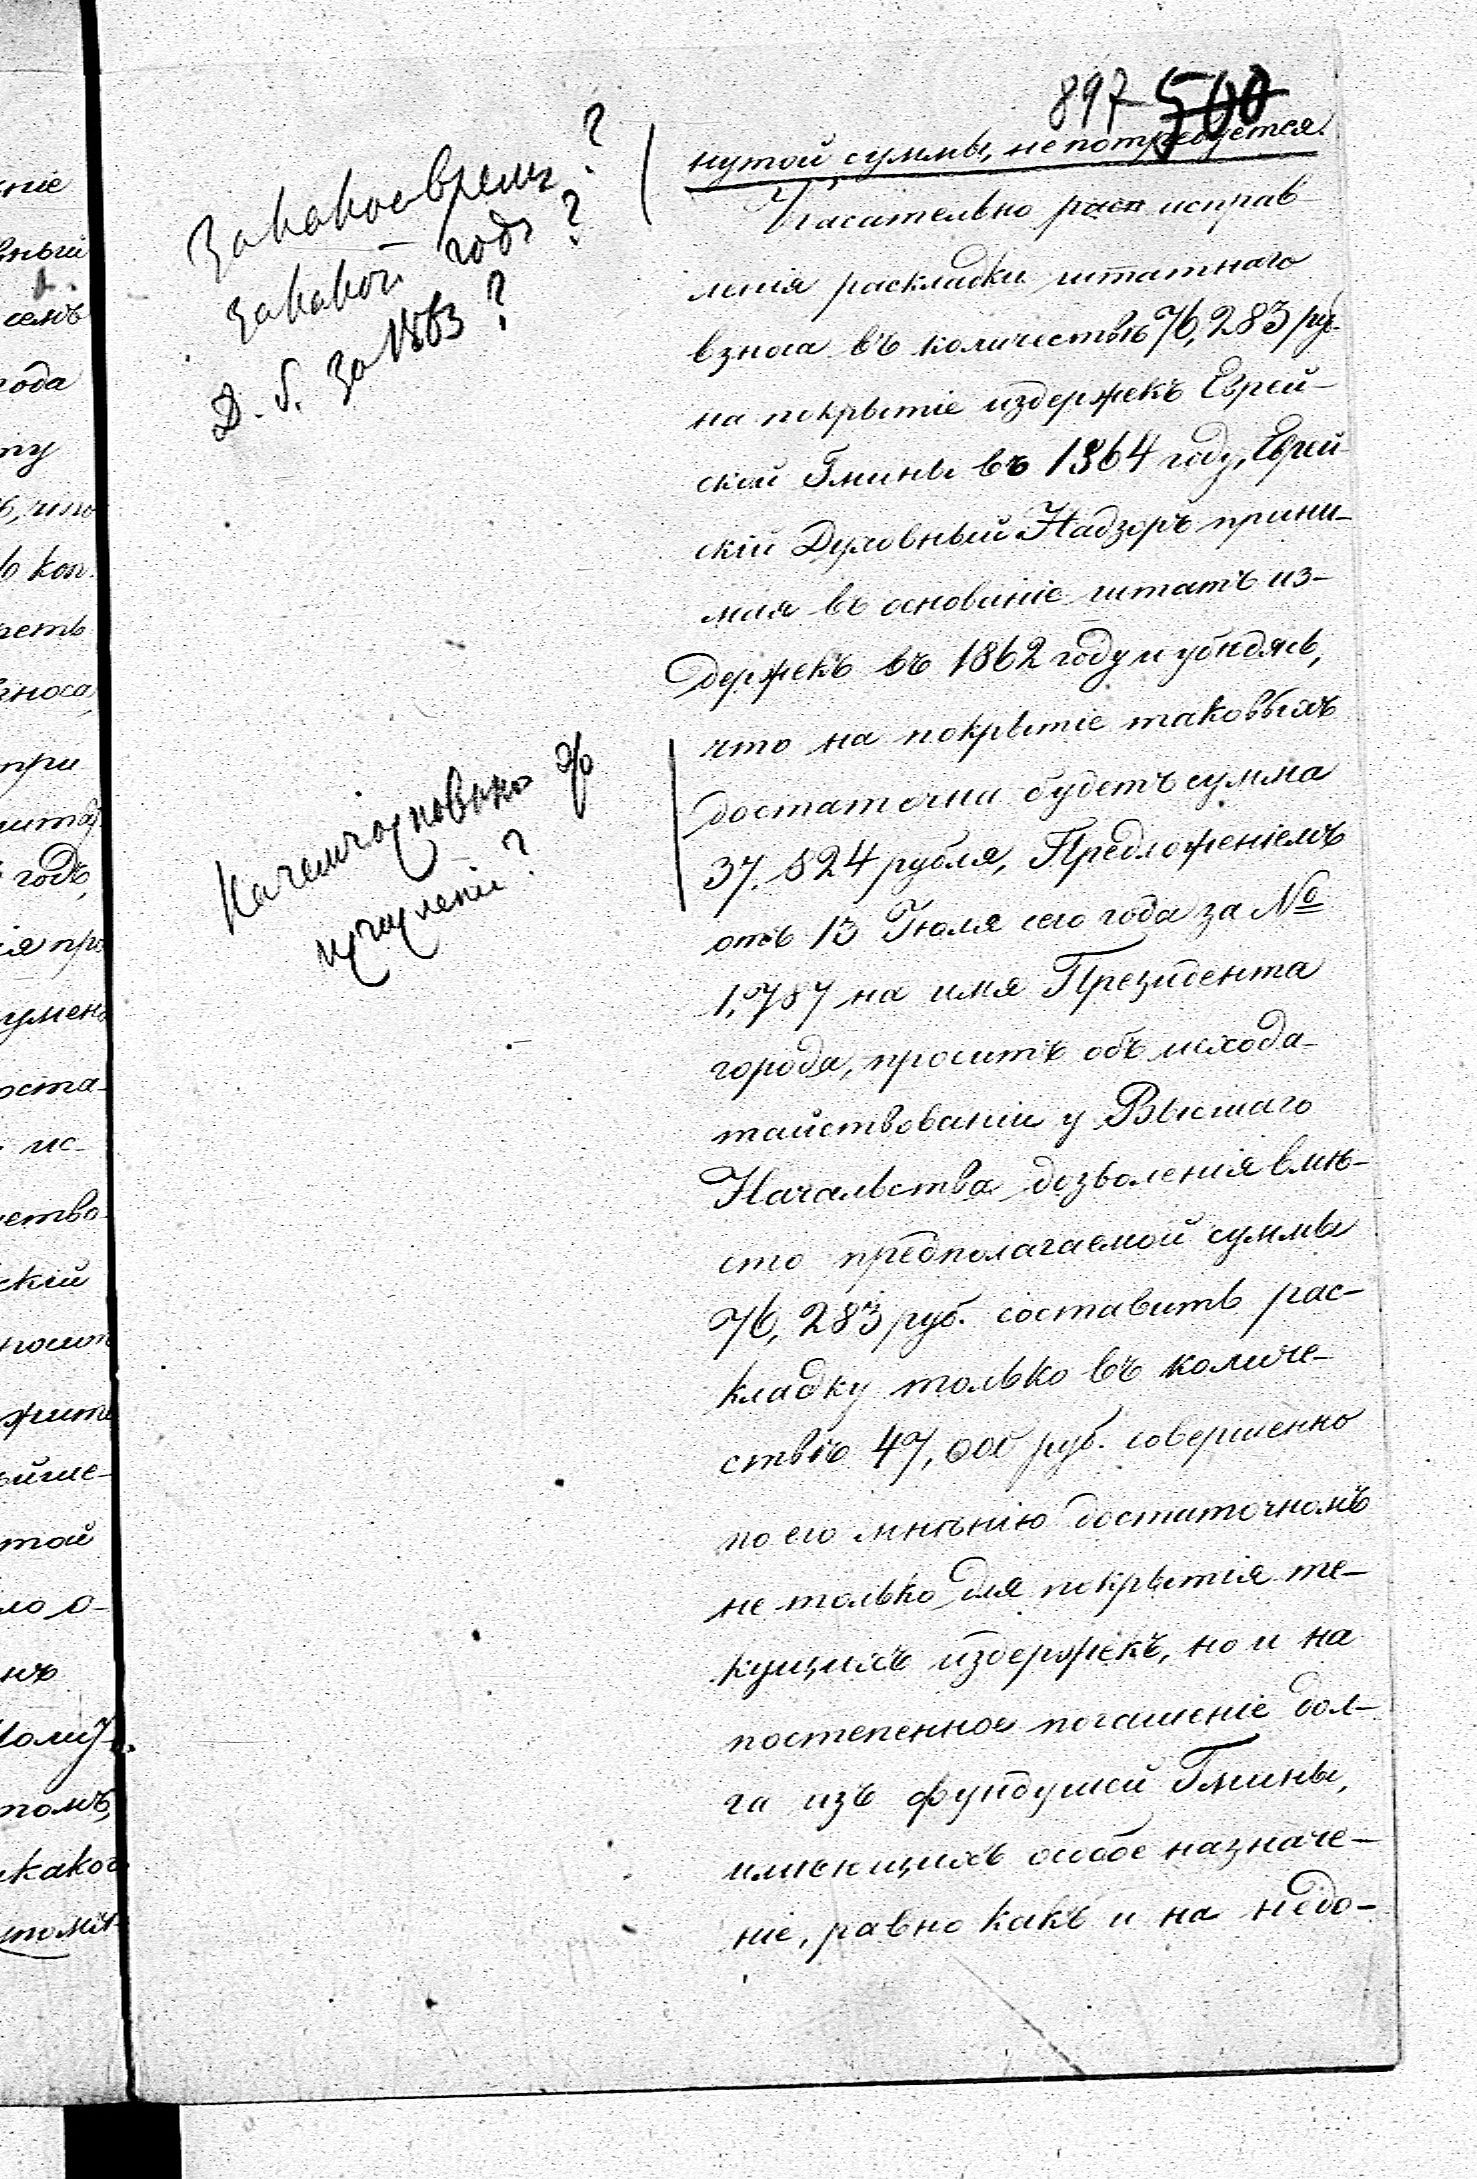 897 500
нутой суммы, не потребуется.
Касательно расп исправ-
ленія раскладки штатнаго
взноса въ количествѣ 76,283 ру.
на покрытіе издержекъ Еврей-
ской Гмины въ 1864 году, Еврей-
скій Духовный Надзоръ прини-
мая въ основаніе штатъ из-
держекъ въ 1862 году и убѣдясь,
что на покрытіе таковыхъ
достаточна будетъ сумма
37.824 рубля, Предложеніемъ
отъ 13 Іюля сего года за №
1,787 на имя Президента
города, проситъ объ исхода-
тайствованіи у Высшаго
Начальства дозволенія вмѣ-
сто предполагаемой суммы
76,283 руб. составить рас-
кладку только въ количе-
ствѣ 47,000 руб. совершенно
по его мнѣнію достаточномъ
не только для покрытія те-
кущихъ издержекъ, но и на
постепенное погашеніе дол-
га изъ фундушей Гмины,
имѣющихъ особое назначе-
ніе, равно какъ и на недо-
За какое время?
За какой годъ?
Д. б. За 1863?
На чемъ основано
исчисленіе?
ніе
вный
семъ
года
ту
ь, что
6 коп.
взноса,
при
годъ,
ія пр
умень
оста-
ис-
ство
скій
той
ло о-